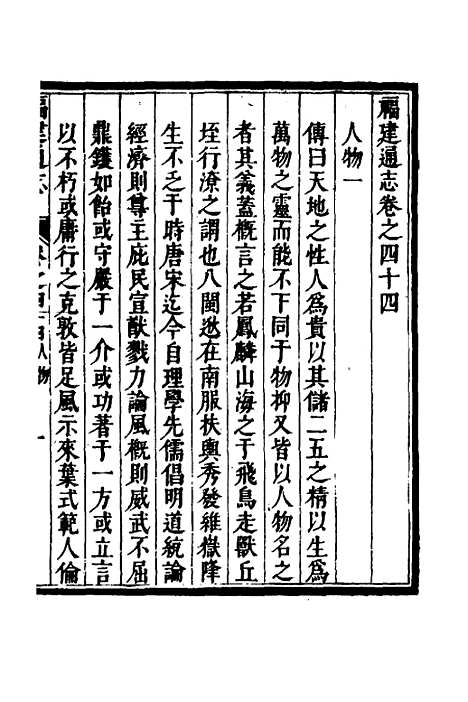 福建通志卷之四十四
人物一
傳曰天地之性人爲貴以其儲二五之精以生爲
萬物之靈而能不下同于物抑又皆以人物名之
者其義蓋概言之若鳳麟山海之于飛鳥走獸丘
垤行潦之謂也八閩遐在南服扶輿秀發維嶽降
生不乏于時唐宋迄今自理學先儒倡明道統論
經濟則尊王庇民宣猷戮力論風概則威武不屈
鼎鑊如飴或守嚴于一介或功著于一方或立言
以不朽或庸行之克敦皆足風示來葉式範人倫
福建通志
卷之四十四人物
一